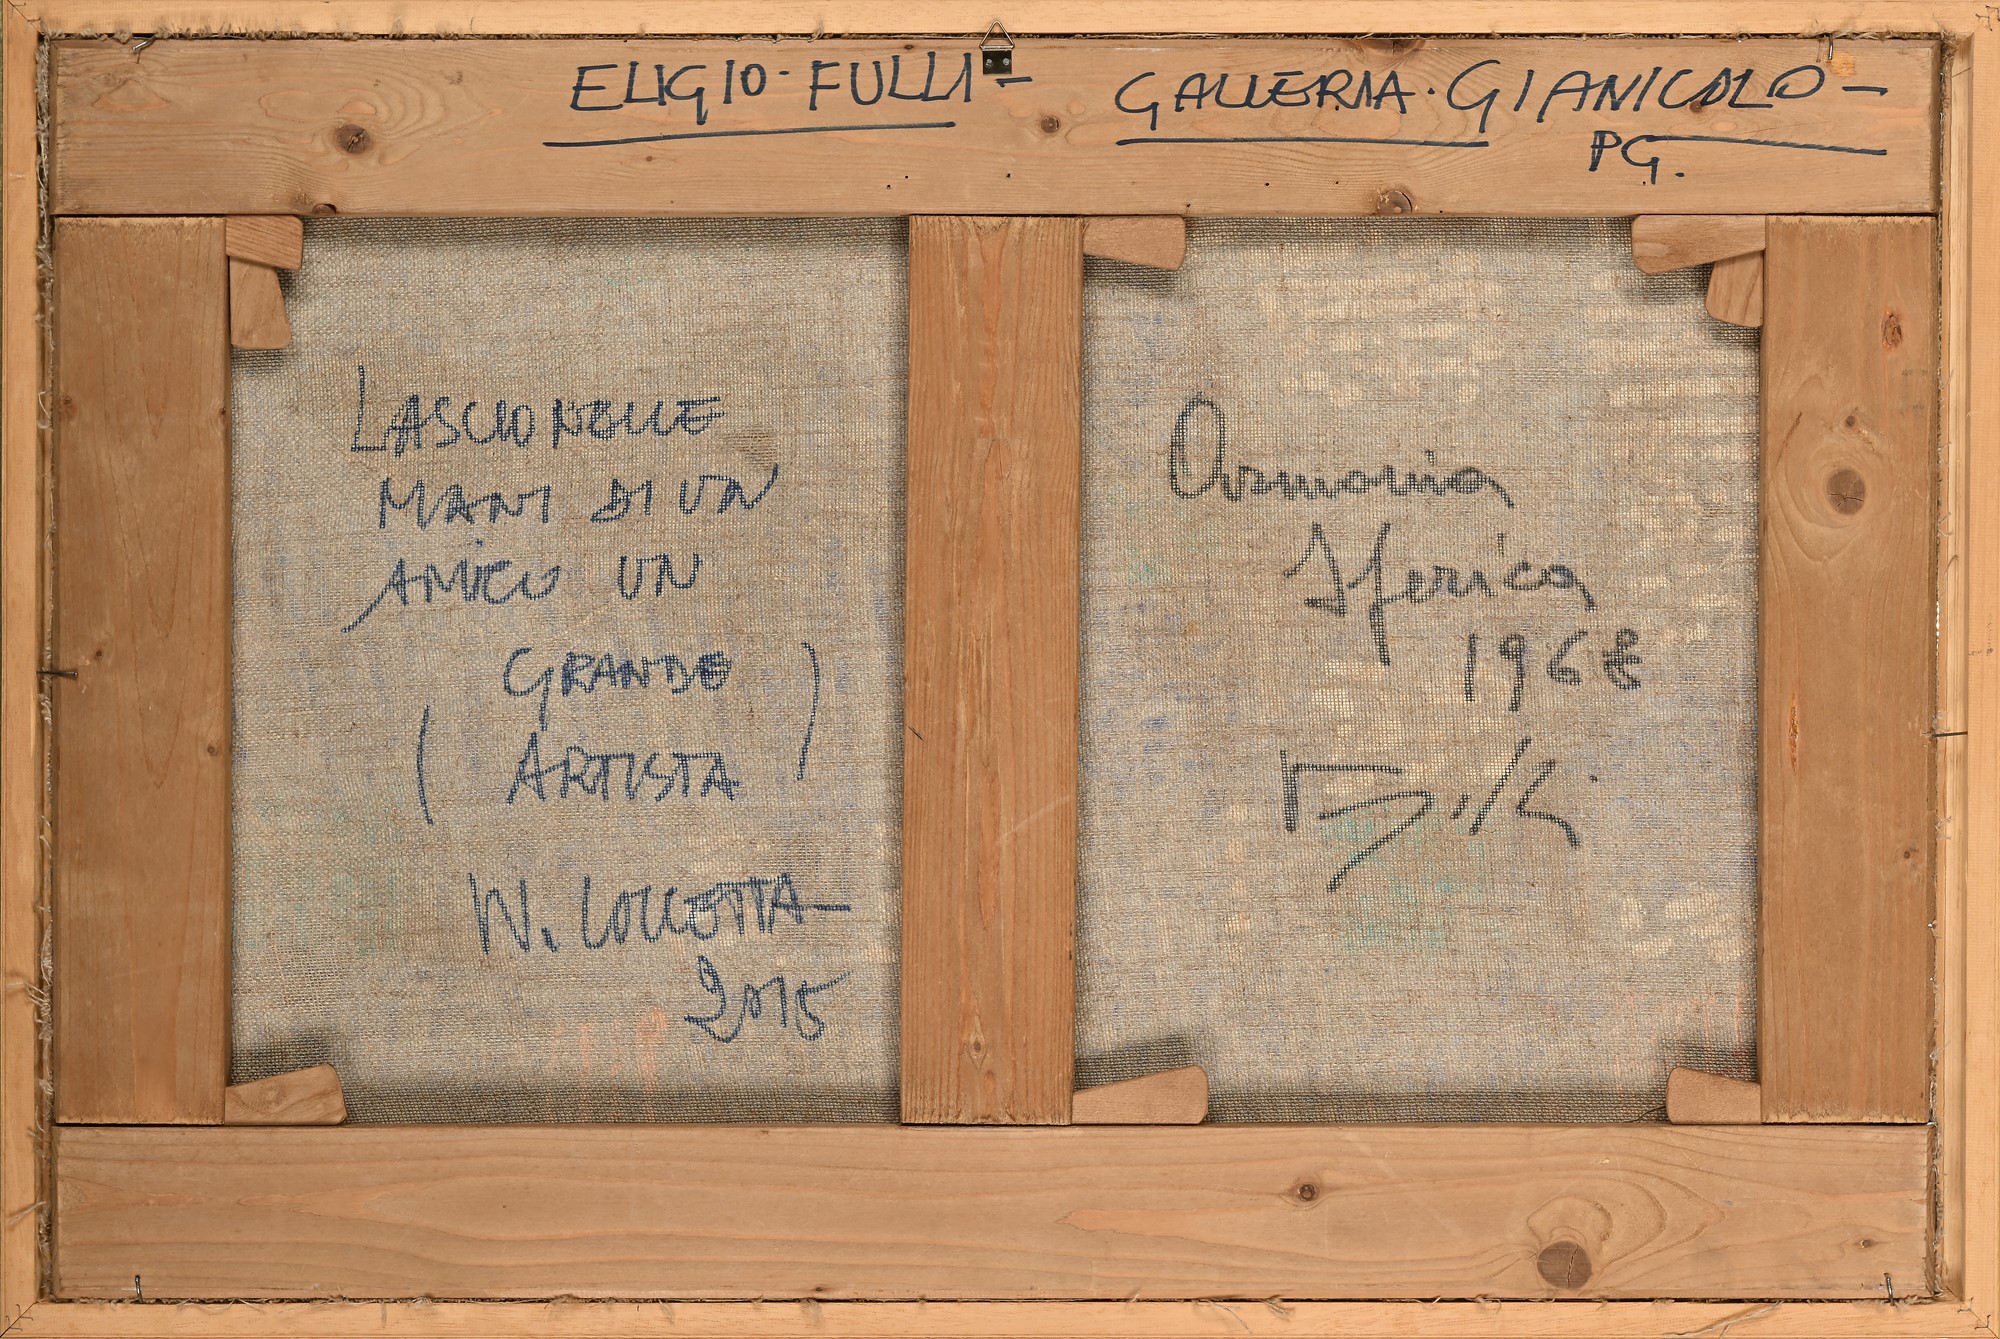 ELIGIO · FULLI -
GALLERIA · GIANICOLO -
PG.
LASCIO NELLE
MANI DI UN
AMICO UN
GRANDE
( ARTISTA )
W. COCCETTA
2015
Armonia
Sferica
1968